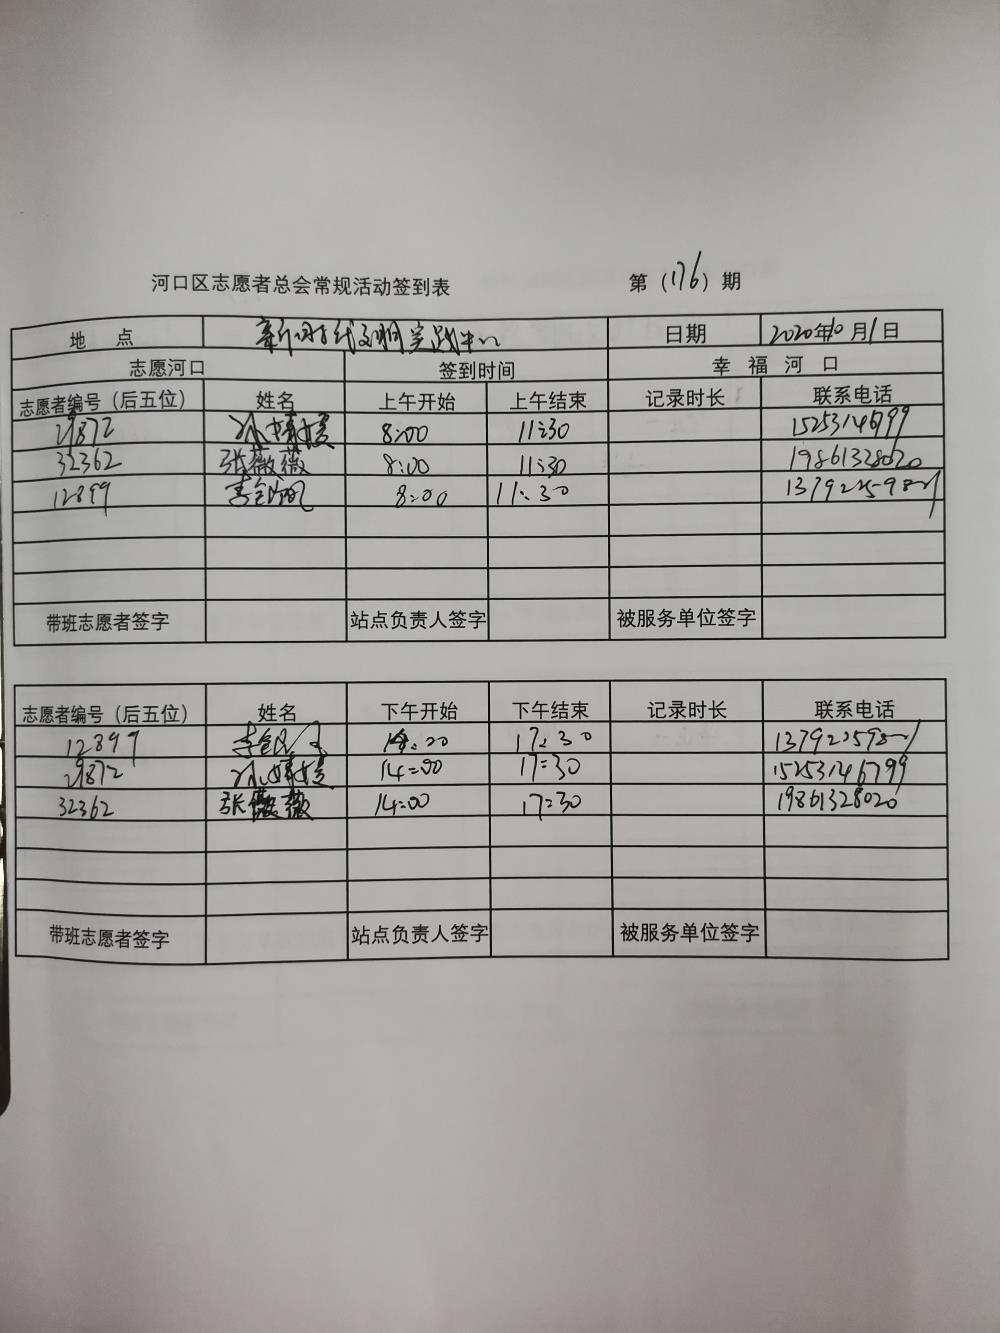 河口区志愿者总会常规活动签到表 第（176）期
地 点 新时代文明实践中心 日期 2020年10月1日
志愿河口 签到时间 幸 福 河 口
志愿者编号（后五位） 姓名 上午开始 上午结束 记录时长 联系电话
29872 8:00 11:30 15253146799
32362 张薇薇 8:00 11:30 19861328020
12899 8:00 11:30
带班志愿者签字 站点负责人签字 被服务单位签字
志愿者编号（后五位） 姓名 下午开始 下午结束 记录时长 联系电话
12899 14:00 17:30
29872 14:00 17:30 15253146799
32362 张薇薇 14:00 17:30 19861328020
带班志愿者签字 站点负责人签字 被服务单位签字